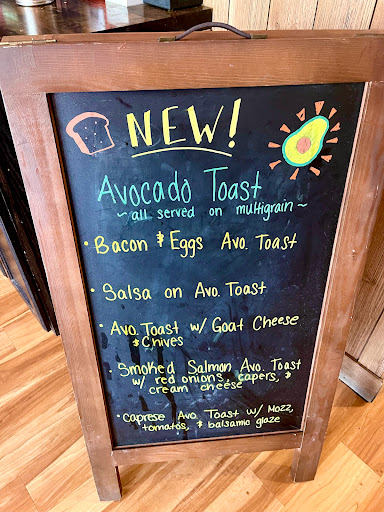 NEW!
Avocado Toast
~ all served on multigrain ~
• Bacon & Eggs Avo. Toast
• Salsa on Avo. Toast
• Avo. Toast w/ Goat Cheese
& Chives
• Smoked Salmon Avo. Toast
w/ red onions, capers, &
cream cheese
• Caprese Avo Toast w/ Mozz,
tomatos, & balsamic glaze